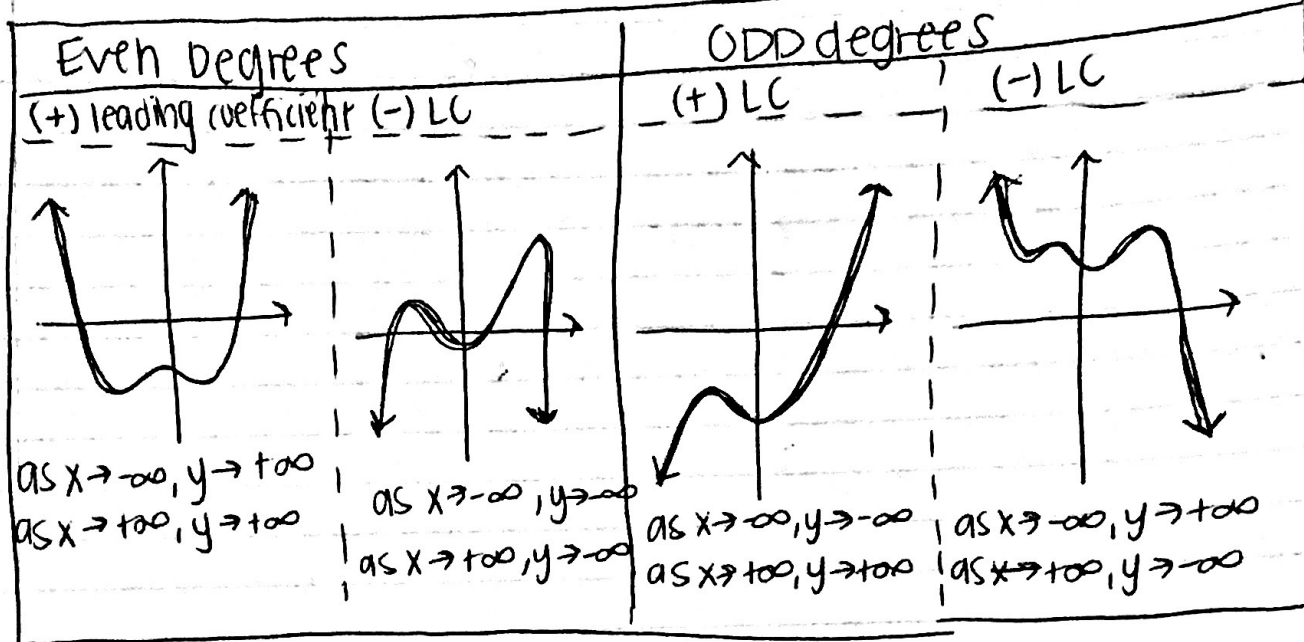 Even Degrees
(+) leading coefficient
(-) LC
as x→-∞, y→+∞
as x→+∞, y→+∞
as x→-∞, y→-∞
as x→+∞, y→-∞
ODD degrees
(+) LC
(-) LC
as x→-∞, y→-∞
as x→+∞, y→+∞
as x→-∞, y→+∞
as x→+∞, y→-∞